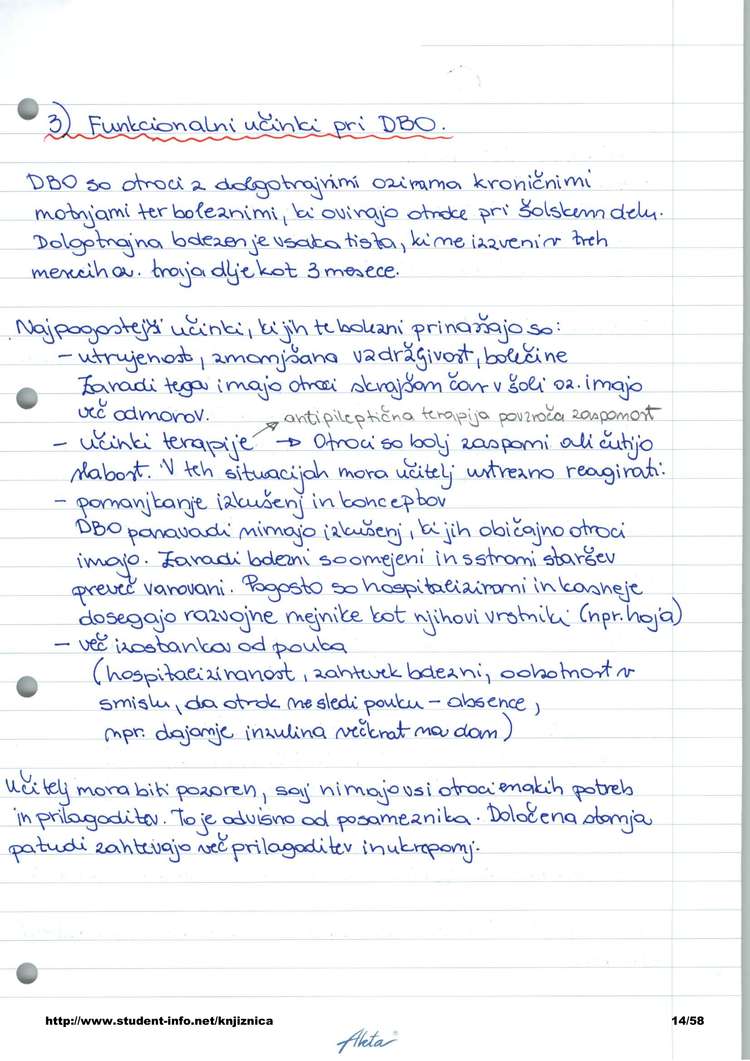 3) Funkcionalni učinki pri DBO.
DBO so otroci z dolgotrajnimi oziroma kroničnimi
motnjami ter boleznimi, ki ovirajo otroke pri šolskem delu.
Dolgotrajna bolezen je vsaka tista, ki ne izzveni v treh
mesecih oz. traja dlje kot 3 mesece.
Najpogostejši učinki, ki jih te bolezni prinašajo so:
– utrujenost, zmanjšana vzdržljivost, bolečine
Zaradi tega imajo otroci skrajšan čas v šoli oz. imajo
več odmorov.
antipileptična terapija povzroča zaspanost
– učinki terapije → Otroci so bolj zaspani ali čutijo
slabost. V teh situacijah mora učitelj ustrezno reagirati.
– pomanjkanje izkušenj in konceptov
DBO ponavadi nimajo izkušenj, ki jih običajno otroci
imajo. Zaradi bolezni so omejeni in s strani staršev
preveč varovani. Pogosto so hospitalizirani in kasneje
dosegajo razvojne mejnike kot njihovi vrstniki (npr. hoja)
– več izostankov od pouka
(hospitaliziranost, zahtevek bolezni, odsotnost v
smislu, da otrok ne sledi pouku – absence,
npr. dajanje inzulina večkrat na dan)
Učitelj mora biti pozoren, saj nimajo vsi otroci enakih potreb
in prilagoditev. To je odvisno od posameznika. Določena stanja
pa tudi zahtevajo več prilagoditev in ukrepanj.
http://www.student-info.net/knjiznica 14/58
Aleta